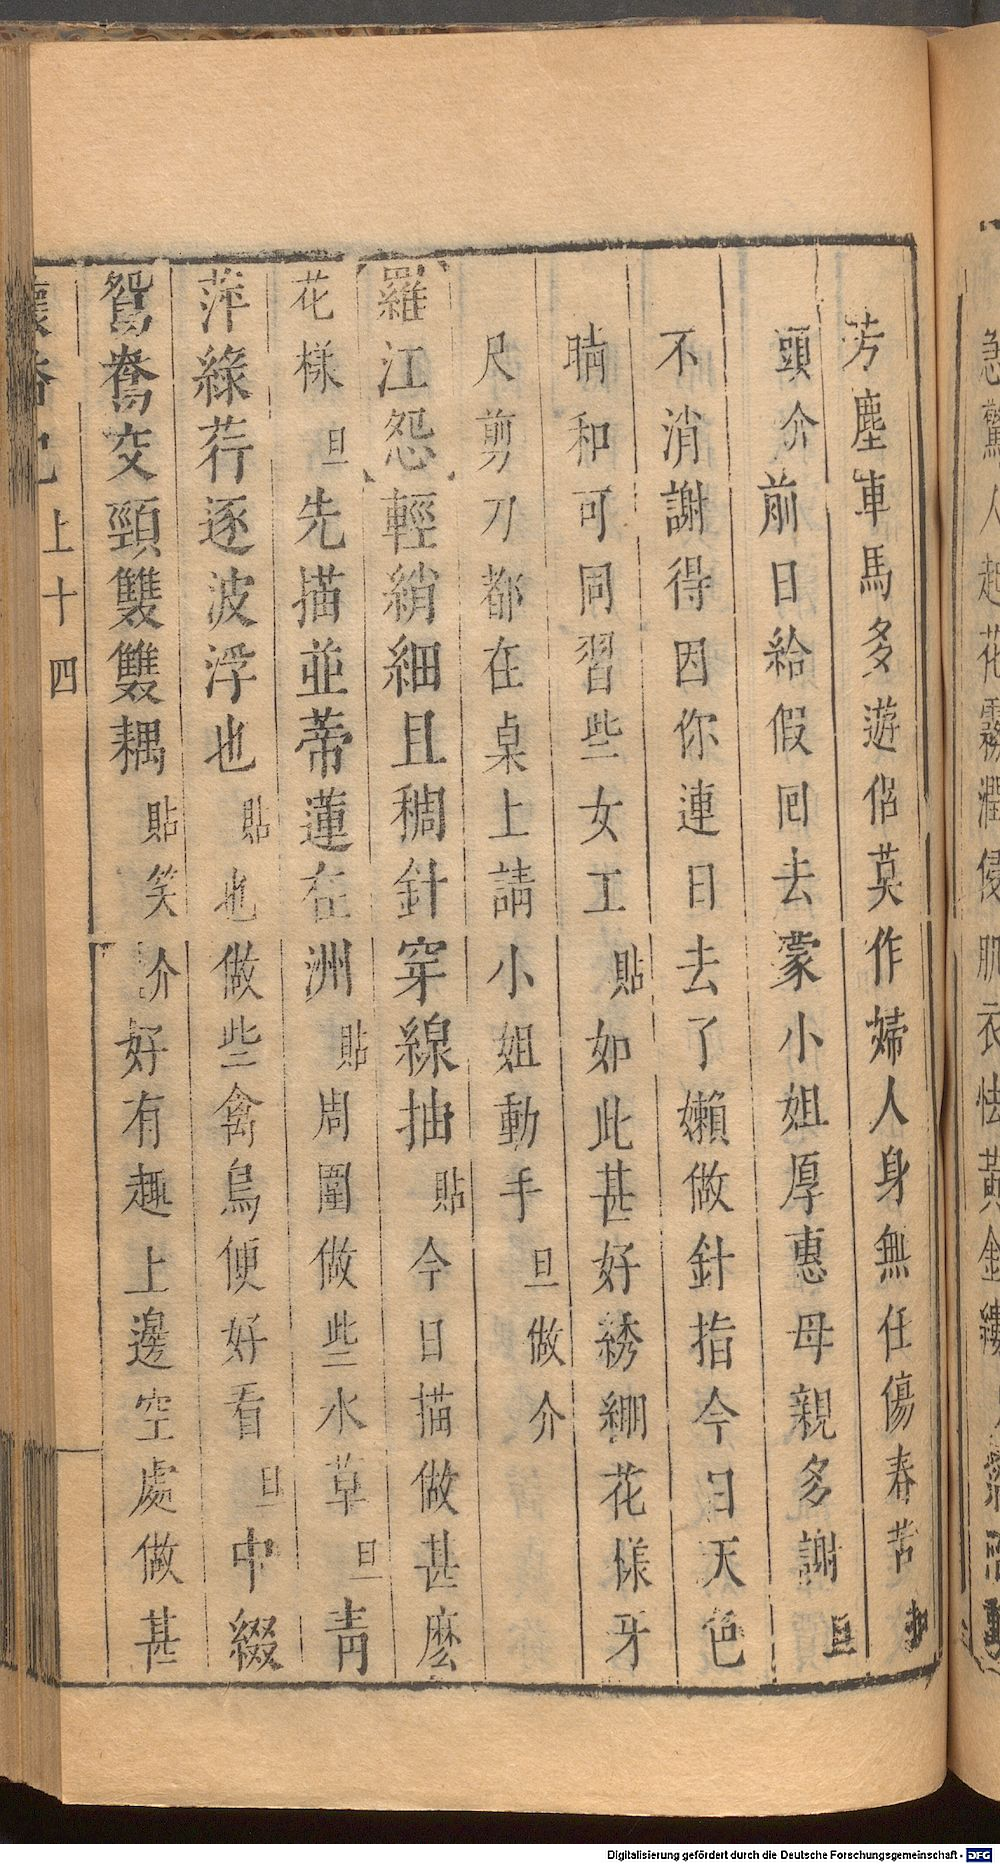 芳塵車馬多遊侶莫作婦人身無任傷春苦
頭介前日給假囘去蒙小姐厚惠母親多謝旦
不消謝得因你連日去了嬾做針指今日天色
晴和可同習些女工貼如此甚好綉綳花樣牙
尺剪刀都在桌上請小姐動手旦做介
羅江怨輕綃細且稠針穿線抽貼今日描做甚麽
花樣旦先描並蒂蓮在洲貼周圍做些水草旦青
萍綠荇逐波浮也貼也做些禽鳥便好看旦中綴
鴛鴦交頸雙雙耦貼笑介好有趣上邊空處做甚
上十四
急驚人起花霧潤侵肌衣怯黃金縷
Digitalisierung gefördert durch die Deutsche Forschungsgemeinschaft - DFG